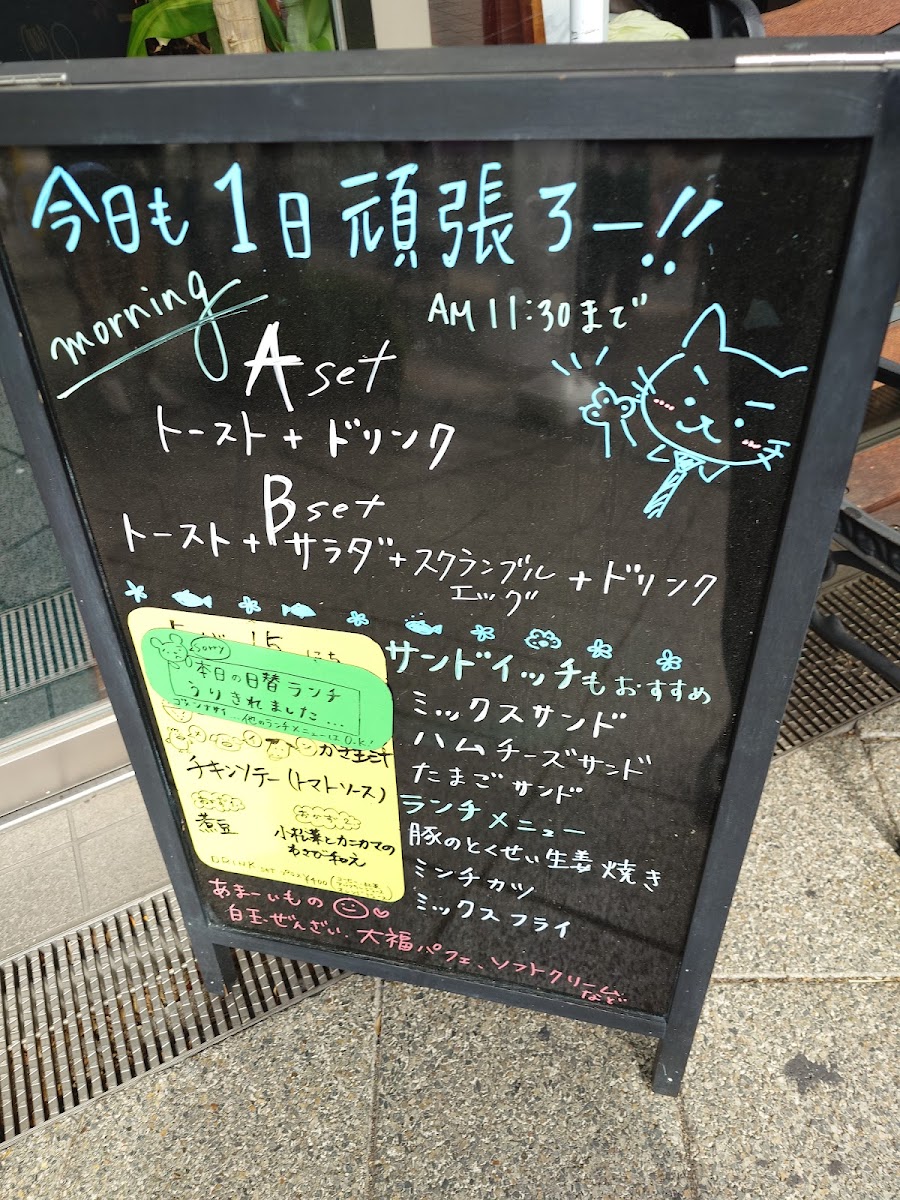 今日も1日頑張ろー!!
morning
AM 11:30まで
A set
トースト + ドリンク
B set
トースト + サラダ + スクランブルエッグ + ドリンク
Sorry
本日の日替ランチ
うりきれました...
ゴメンナサイ...他のランチメニューはO.K!
チキンソテー(トマトソース)
おかず1
煮豆
おかず2
小松菜とカニカマの
わさび和え
DRINK SET
¥400
サンドイッチもおすすめ
ミックスサンド
ハムチーズサンド
たまごサンド
ランチメニュー
豚のとくせい生姜焼き
ミンチカツ
ミックスフライ
あまーいもの
白玉ぜんざい、大福パフェ、ソフトクリーム
など